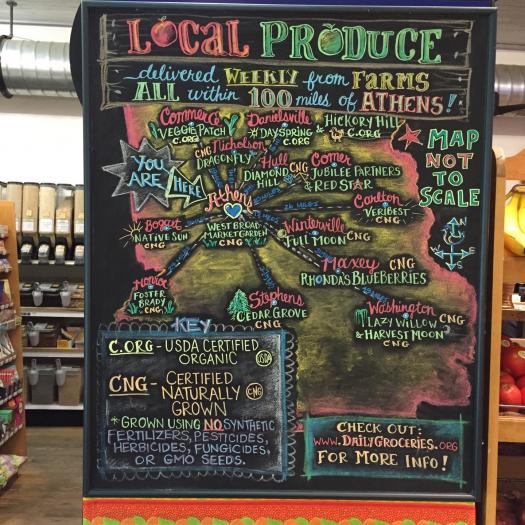 LOCAL PRODUCE
delivered WEEKLY from FARMS
ALL within 100 miles of ATHENS!
Commerce
VEGGIE PATCH
C.ORG
Danielsville
DAYSPRING
C.ORG
HICKORY HILL
C.ORG
MAP
NOT
TO
SCALE
CNG Nicholson
DRAGONFLY
Hull
DIAMOND CNG
HILL
Comer
JUBILEE PARTNERS
& RED STAR
YOU
ARE
HERE
Athens
WEST BROAD
MARKET GARDEN
CNG
Carlton
VERIBEST
CNG
Bogart
NATIVE SUN
CNG
Winterville
FULL MOON CNG
Maxeys CNG
RHONDA'S BLUEBERRIES
Monroe
FOSTER
BRADY
CNG
Stephens
CEDAR GROVE
CNG
Washington
LAZY WILLOW CNG
& HARVEST MOON
CNG
KEY
C.ORG - USDA CERTIFIED
ORGANIC USDA
CNG - CERTIFIED
NATURALLY
GROWN CNG
* GROWN USING NO SYNTHETIC
FERTILIZERS, PESTICIDES,
HERBICIDES, FUNGICIDES,
OR GMO SEEDS.
CHECK OUT:
WWW.DAILYGROCERIES.ORG
FOR MORE INFO!